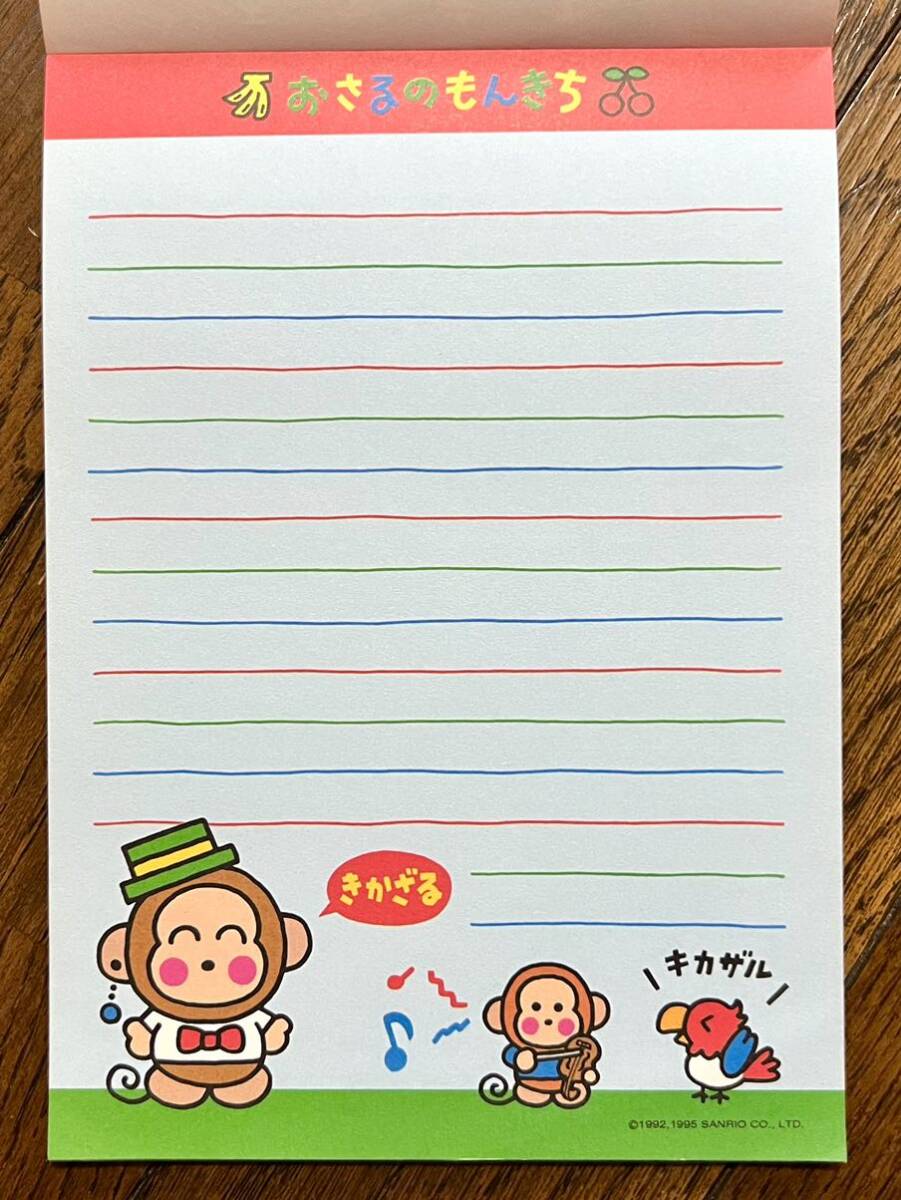 おさるのもんきち
きかざる
キカザル
©1992,1995 SANRIO CO., LTD.